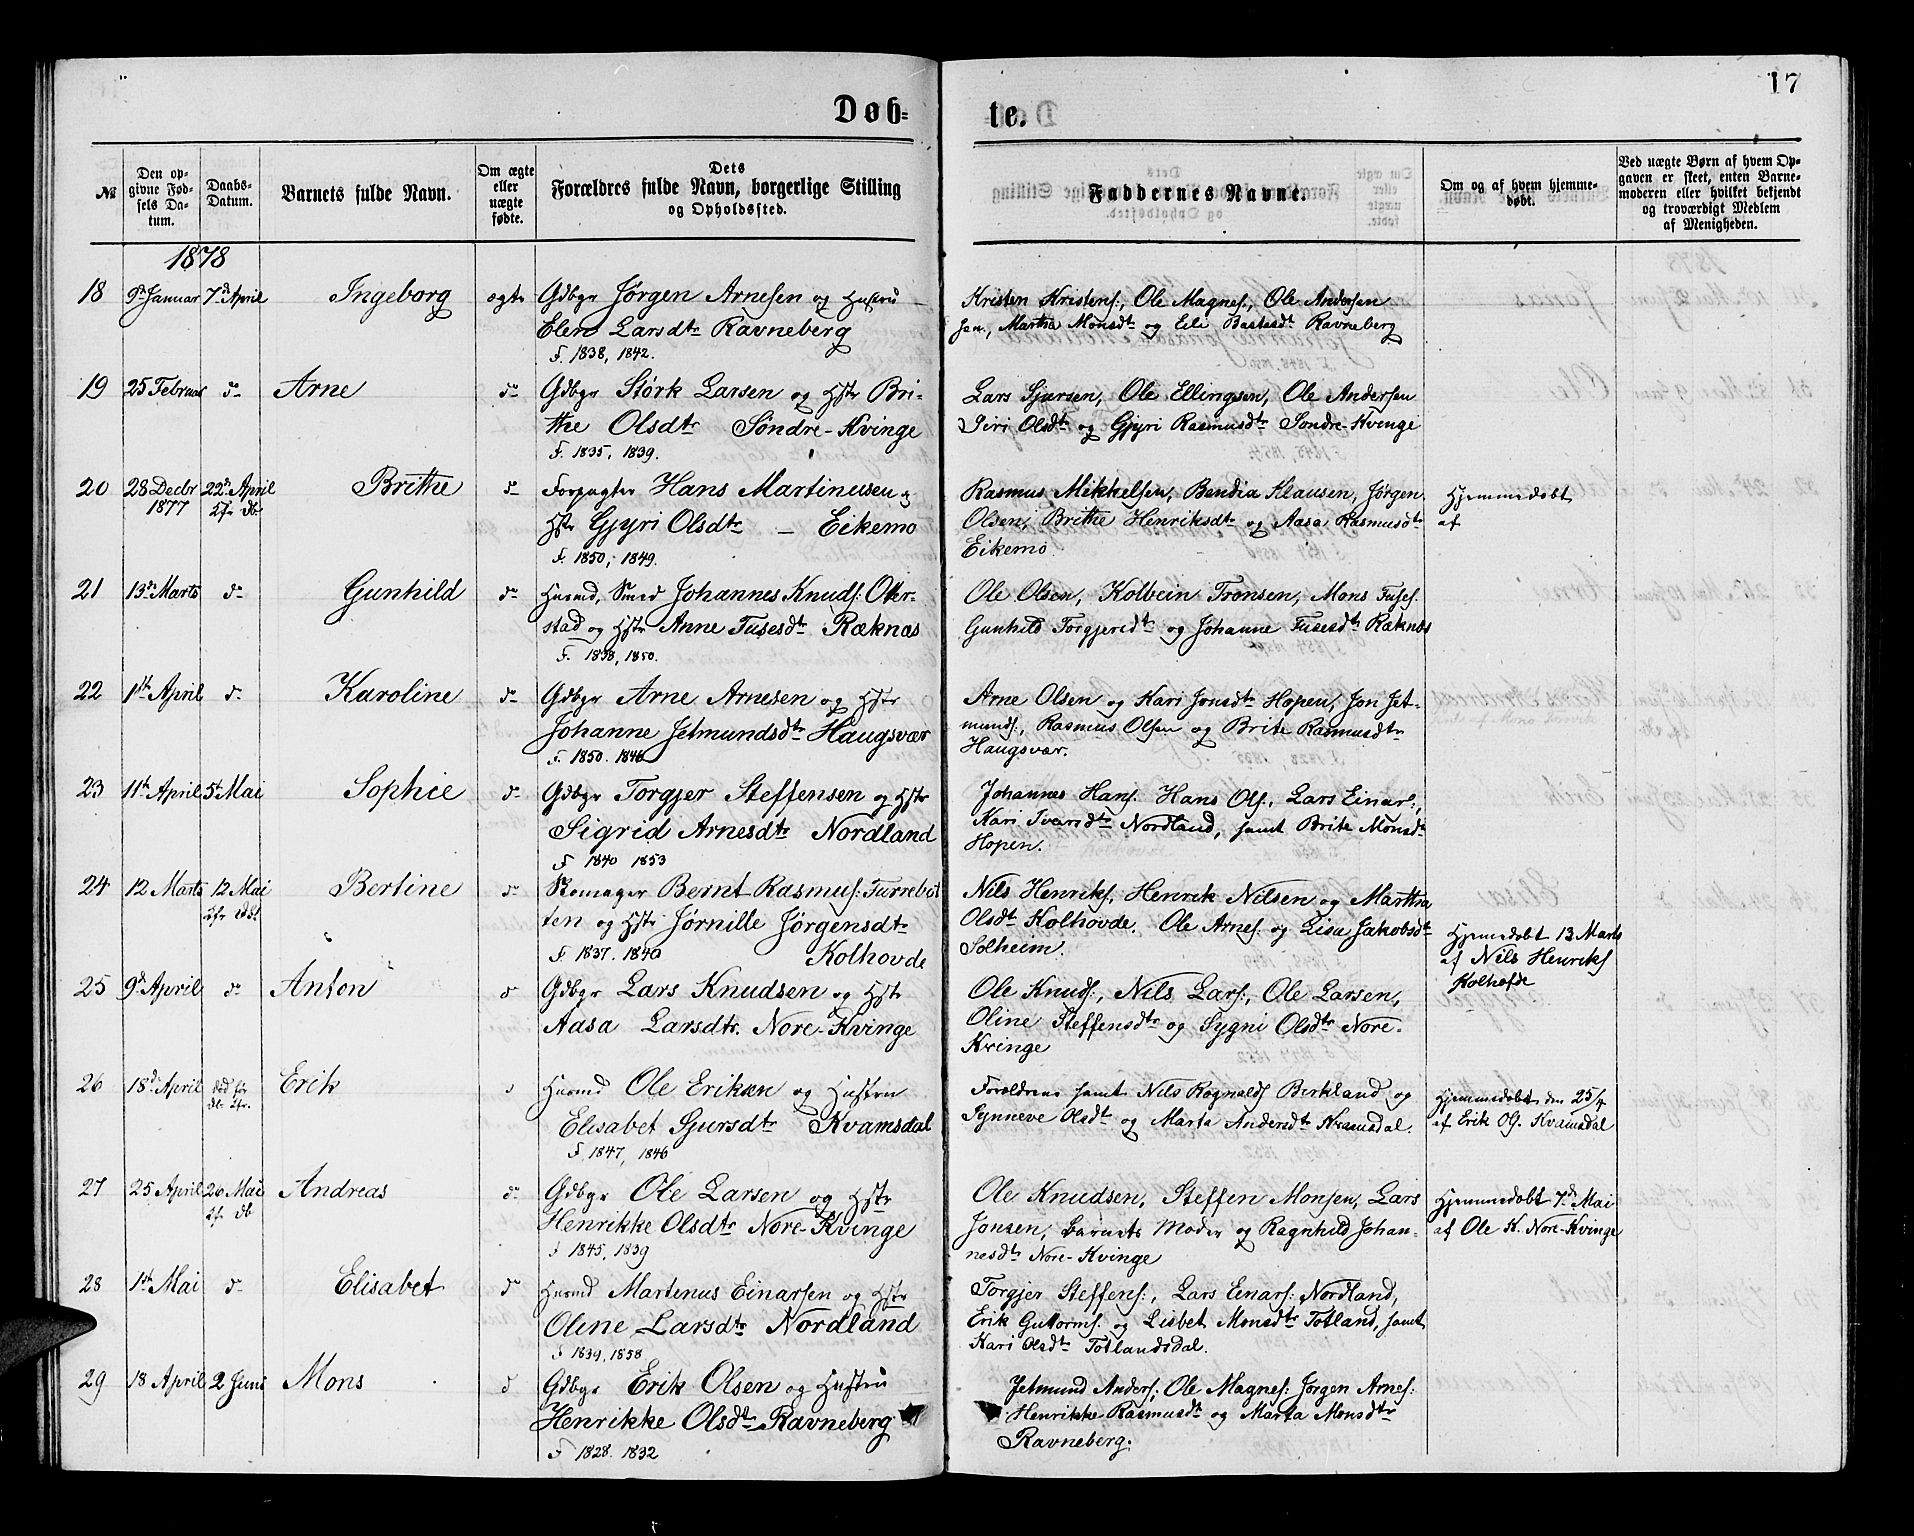 17
Døb-
te.
№
Den op-
givne Fød-
sels Da-
tum.
Daabs-
Datum.
Barnets fulde Navn.
Om ægte
eller
uægte
fødte.
Dets
Forældres fulde Navn, borgerlige Stilling
og Opholdssted.
Faddernes Navne.
Om og af hvem hjemme-
døbt.
Ved uægte Børn af hvem Op-
gaven er skeet, enten Barne-
moderen eller hvilket bekjendt
og troværdigt Medlem
af Menigheden.
1878
18 9de Januar 7de April Ingeborg ægte Gdbgr Jørgen Arnesen og Hustru
Elen Larsdtr Ravneberg
F. 1838, 1842.
Kristen Kristens:, Ole Magnes:, Ole Andersen
sen, Martha Monsdtr og Eli Bastesdtr Ravneberg
19 25 Februar do Arne do Gdbgr Størk Larsen og Hstr Bri-
the Olsdtr Søndre-Kvinge
F. 1835, 1839.
Lars Sjursen, Ole Ellingsen, Ole Andersen
Siri Olsdtr og Gjyri Rasmusdtr Søndre-Kvinge
20 28 Decbr 22de April Brithe do Forpagter Hans Martinusen og
1877 Kfr db
Hstr Gjyri Olsdtr - Eikemo
F. 1850, 1849.
Rasmus Mikkelsen, Bendix Klausen, Jørgen
Olsen, Brithe Henriksdtr og Aasa Rasmusdtr
Eikemo
Hjemmedøbt
af
21 13de Marts do Gunhild do Husmd, Smed Johannes Knuds: Oker-
stad og Hstr Anne Tusesdtr Ræknæs
F. 1838, 1850.
Ole Olsen, Kolbein Tronsen, Mons Tuses:
Gunhild Torgjersdtr og Johanne Tusesdtr Ræknæs
22 1ste April do Karoline do Gdbgr Arne Arnesen og Hstr
Johanne Jetmundsdtr Haugsvær
F. 1850. 1846
Arne Olsen og Kari Jonsdtr Hopen, Jon Jet-
munds:, Rasmus Olsen og Brite Rasmusdtr
Haugsvær.
23 11te April 5te Mai Sophie do Gdbgr Torgjer Steffensen og Hstr
Sigrid Arnesdtr Nordland
F 1840 1853
Johannes Hans: Hans Ols:, Lars Einars:,
Kari Ivarsdtr Nordland, samt Brite Monsdtr
Hopen.
24 12 Marts 12 Mai Bertine do Skomager Bernt Rasmus: Turrebot
ten og Hstr Jørnille Jørgensdtr
F 1837. 1840 Kolhovde
Nils Henriks:, Henrik Nilsen og Martha
Olsdtr Kolhovde, Ole Arnes: og Lisa Jakobsdtr
Solheim.
Hjemmedøbt 13 Marts
af Nils Henriks
Kolhofde
25 9de April do Anton d Gdbgr Lars Knudsen og Hstr
Aasa Larsdtr. Nore-Kvinge
Ole Knuds:, Nils Lars:, Ole Larsen,
Oline Steffensdtr og Sygni Olsdtr Nore-
Kvinge
26 18de April Erik Husmd Ole Eriksen og Hustru
Elisabet Sjursdtr Kvamsdal
F. 1847, 1846
Forældrene samt Nils Ragnalds Birkland og
Synneve Olsdtr og Marta Andersdtr Kvamsdal.
Hjemmedøbt den 25/4
af Erik Ols. Kvamsdal
27 25 April 26 Mai Andreas do Gdbgr Ole Larsen og Hstr
Kfr db
Henrikke Olsdtr Nore-Kvinge
F 1845, 1839
Ole Knudsen, Steffen Monsen, Lars
Jonsen, Barnets Moder og Ragnhild Johan-
nesdtr Nore-Kvinge
Hjemmedøbt 7de Mai
af Ole K. Nore-Kvinge
28 1ste Mai do Elisabet do Husmd Martenus Einarsen og Hstr
Oline Larsdtr Nordland
F 1839, 1858
Torgjer Steffens:, Lars Einars: Nordland,
Erik Guttorms. og Lisbet Monsdtr Totland, samt
Kari Olsdtr Totlandsdal.
29 18 April 2 Juni Mons d Gdbgr Erik Olsen og Hustru
Henrikke Olsdtr Ravneberg
F 1828. 1832
Jetmund Anders:, Ole Magnes: Jørgen Arnes:
Henrikke Rasmusdtr og Marta Monsdtr
Ravneberg.